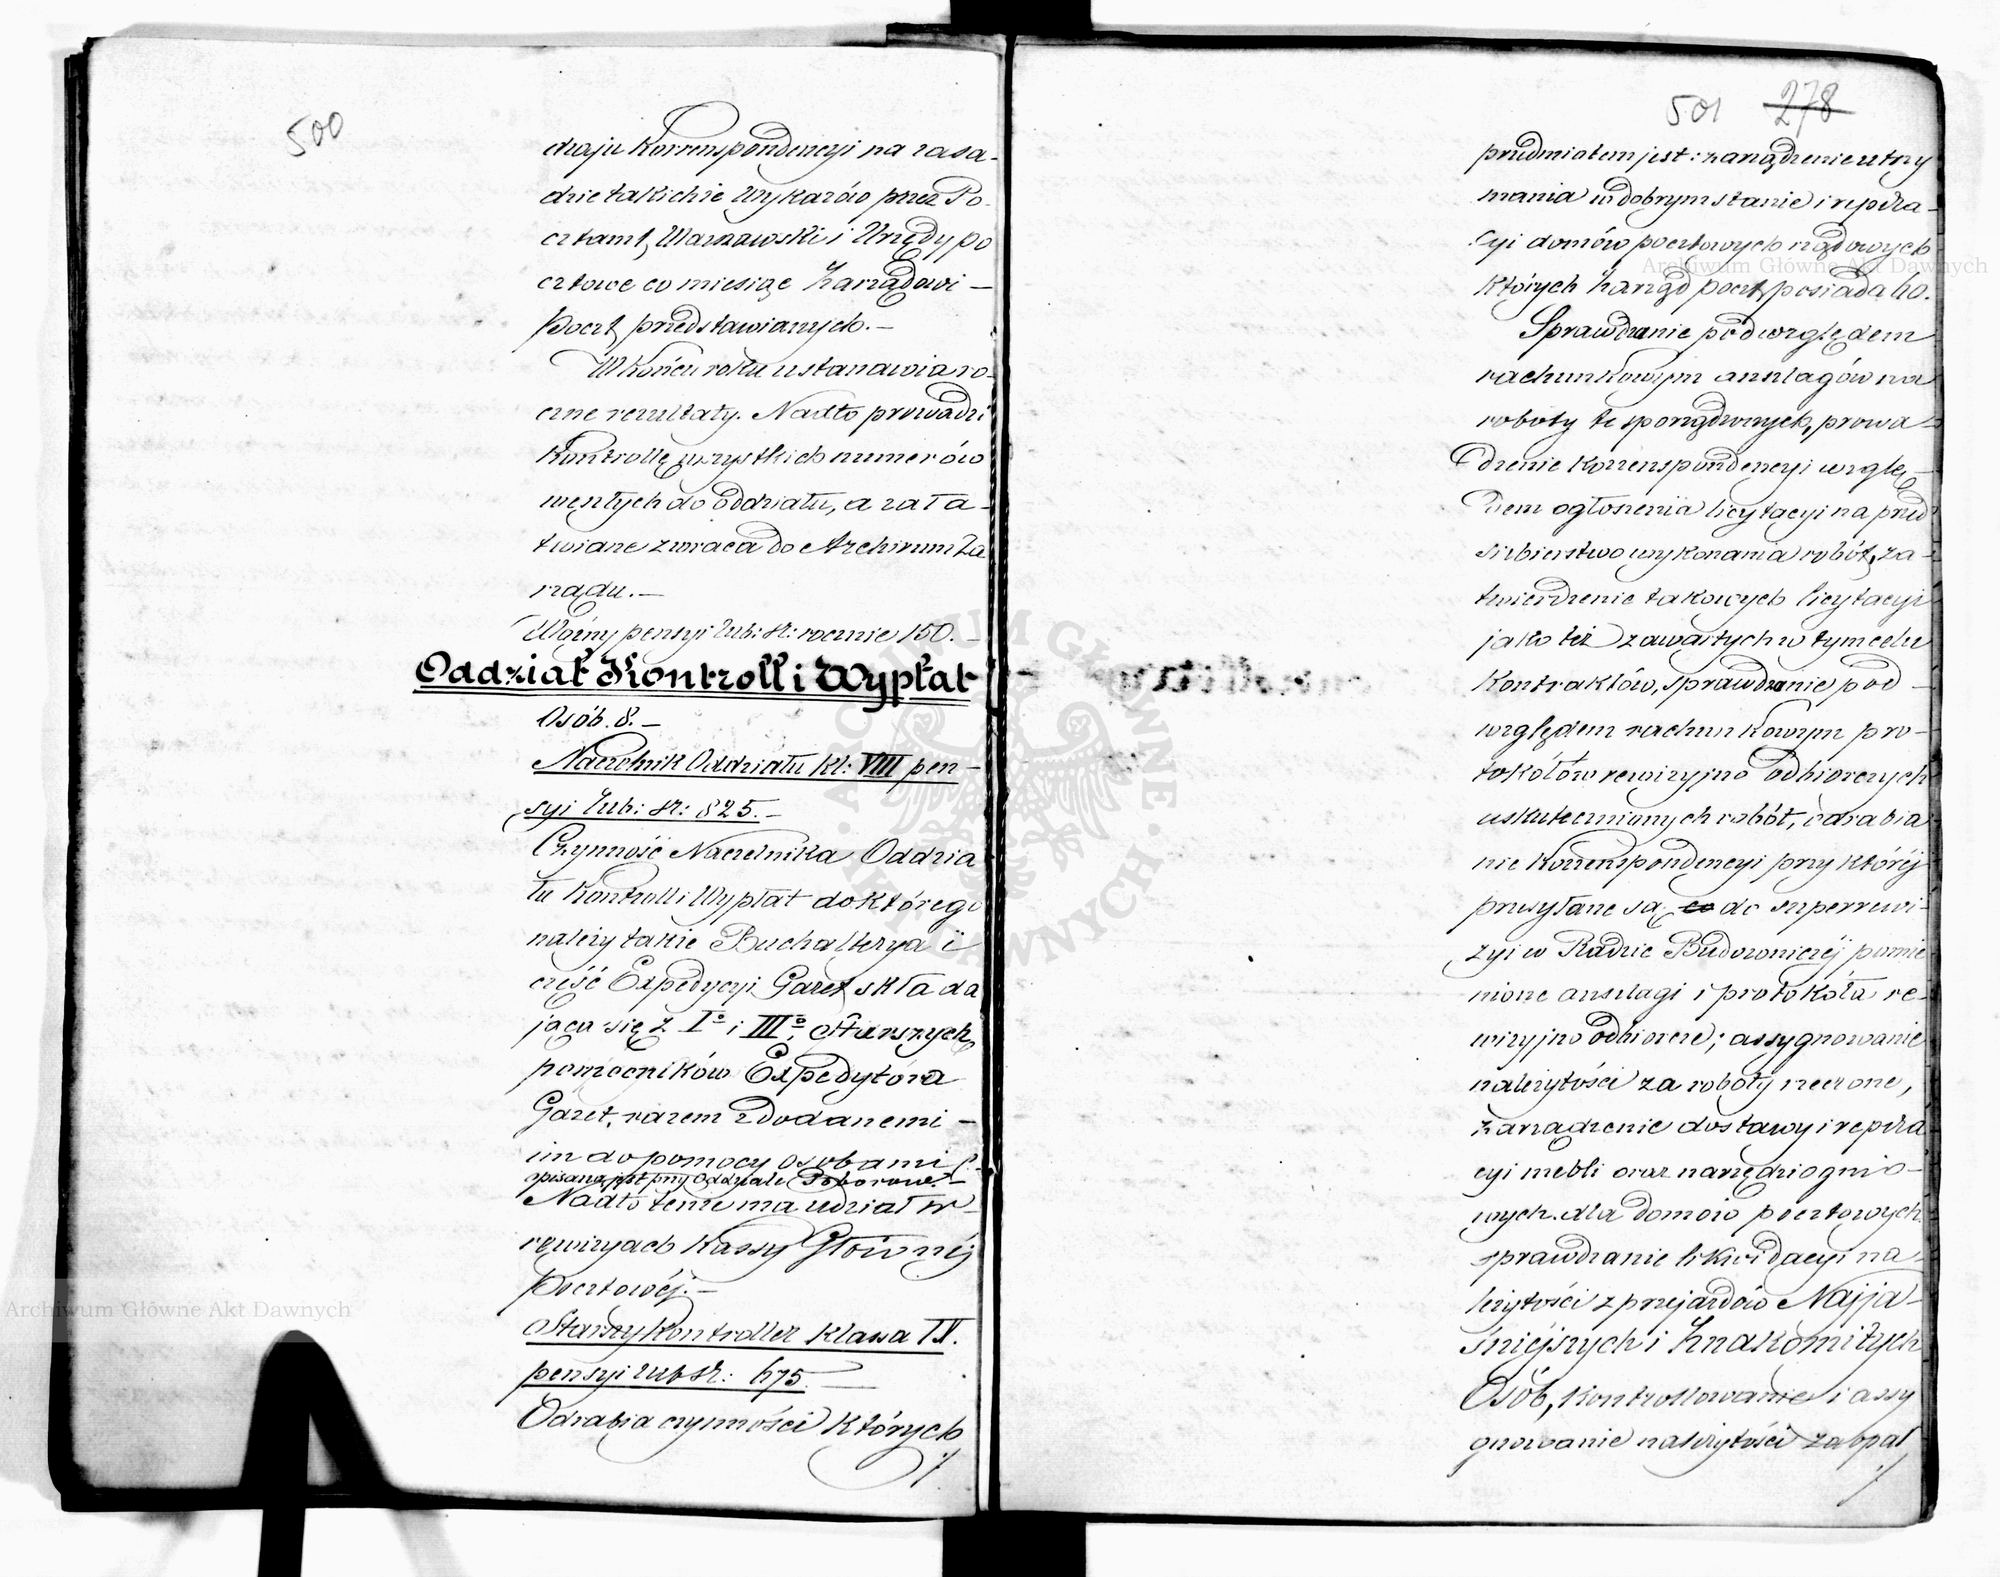 500
dzaju Korrespondencyi na zasa-
dzie takichże Wykazów przez Po-
cztamt Warszawski i Urzędy po
cztowe co miesiąc Zarządowi —
Poczt przedstawianych. —
W końcu roku ustanawia ro-
czne rezultaty. Nadto prowadzi
Kontrollę wszystkich numerów
wziętych do Oddziału, a zała-
twiane zwraca do Archiwum Za
rządu. —
Woźny pensyi rub: sr: rocznie 150. —
Oddział Kontroll i Wypłat
Osób. 8. —
Naczelnik Oddziału kl: VIII pen-
syi rub: sr: 825. —
Czynność Naczelnika Oddzia
łu Kontroll i Wypłat do którego
należy także Buchalterya i
część Expedycyi Gazet składa
jąca się z Iº i IIIº, Starszych
pomocników Expedytora
Gazet, razem z dodanemi —
im do pomocy osobami
opisana jest przy Oddziale Poborowe. —
Nadto tenże ma udział w
rewizyach Kassy Głównéj
Pocztowéj. —
Starszy Kontroller klassa IX.
pensyi rub sr: 675. —
Odrabia czynności których
./.
501 278
przedmiotem jest: zarządzenie utrzy
mania w dobrym stanie i repera-
cyi domów pocztowych rządowych
których Zarząd poczt posiada 40.
Sprawdzanie pod względem
rachunkowym anszlagów na
roboty te sporządzonych, prowa-
dzenie korrespondencyi wzglę-
dem ogłoszenia licytacyi na przed
siebierstwo wykonania robót, za-
twierdzenie takowych licytacyi
jako też zawartych w tym celu
Kontraktów, sprawdzanie pod —
względem rachunkowym pro-
tokółów rewizyjno odbiorczych
uskutecznionych robót, odrabia
nie Korrespondencyi przy któréj
przesyłane są do superrewi-
zyi w Radzie Budowniczéj pomie
nione anszlagi i protokóła re-
wizyjno odbiorcze; assygnowanie
należytości za roboty rzeczone,
zarządzenie dostawy i repera
cyi mebli oraz narzędzi ognio-
wych dla domów pocztowych
sprawdzanie likwidacyi na-
leżytości z przejazdów Najja-
śniejszych i Znakomitych
Osób, kontrollowanie i assy
gnowanie należytości za opał
./.
Archiwum Główne Akt Dawnych
Archiwum Główne Akt Dawnych
ARCHIWUM GŁÓWNE AKT DAWNYCH